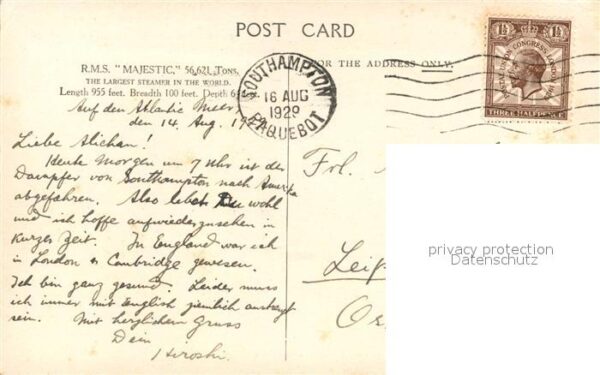 POST CARD
R.M.S. "MAJESTIC," 56,621, Tons,
THE LARGEST STEAMER IN THE WORLD.
Length 955 feet. Breadth 100 feet. Depth
FOR THE ADDRESS ONLY.
SOUTHAMPTON
16 AUG
1929
PAQUEBOT
1½ POSTAL UNION CONGRESS LONDON 1929 1½
THREE HALFPENCE
Auf den Atlatic Meer,
den 14. Aug. 19
Liebe Alichan!
Heute Morgen um 7 Uhr ist der
Dampfer von Southampton nach Amerika
abgefahren. Also lebst Du wohl
und ich hoffe aufwiederzusehen in
kurzes Zeit. In England war ich
in London & Cambridge gewesen.
Ich bin ganz gesund. Leider muss
ich immer mit English ziemlich
sein. Mit herzlichem Gruss
Dein
Hiroshi.
Frl.
Leip
privacy protection
Datenschutz